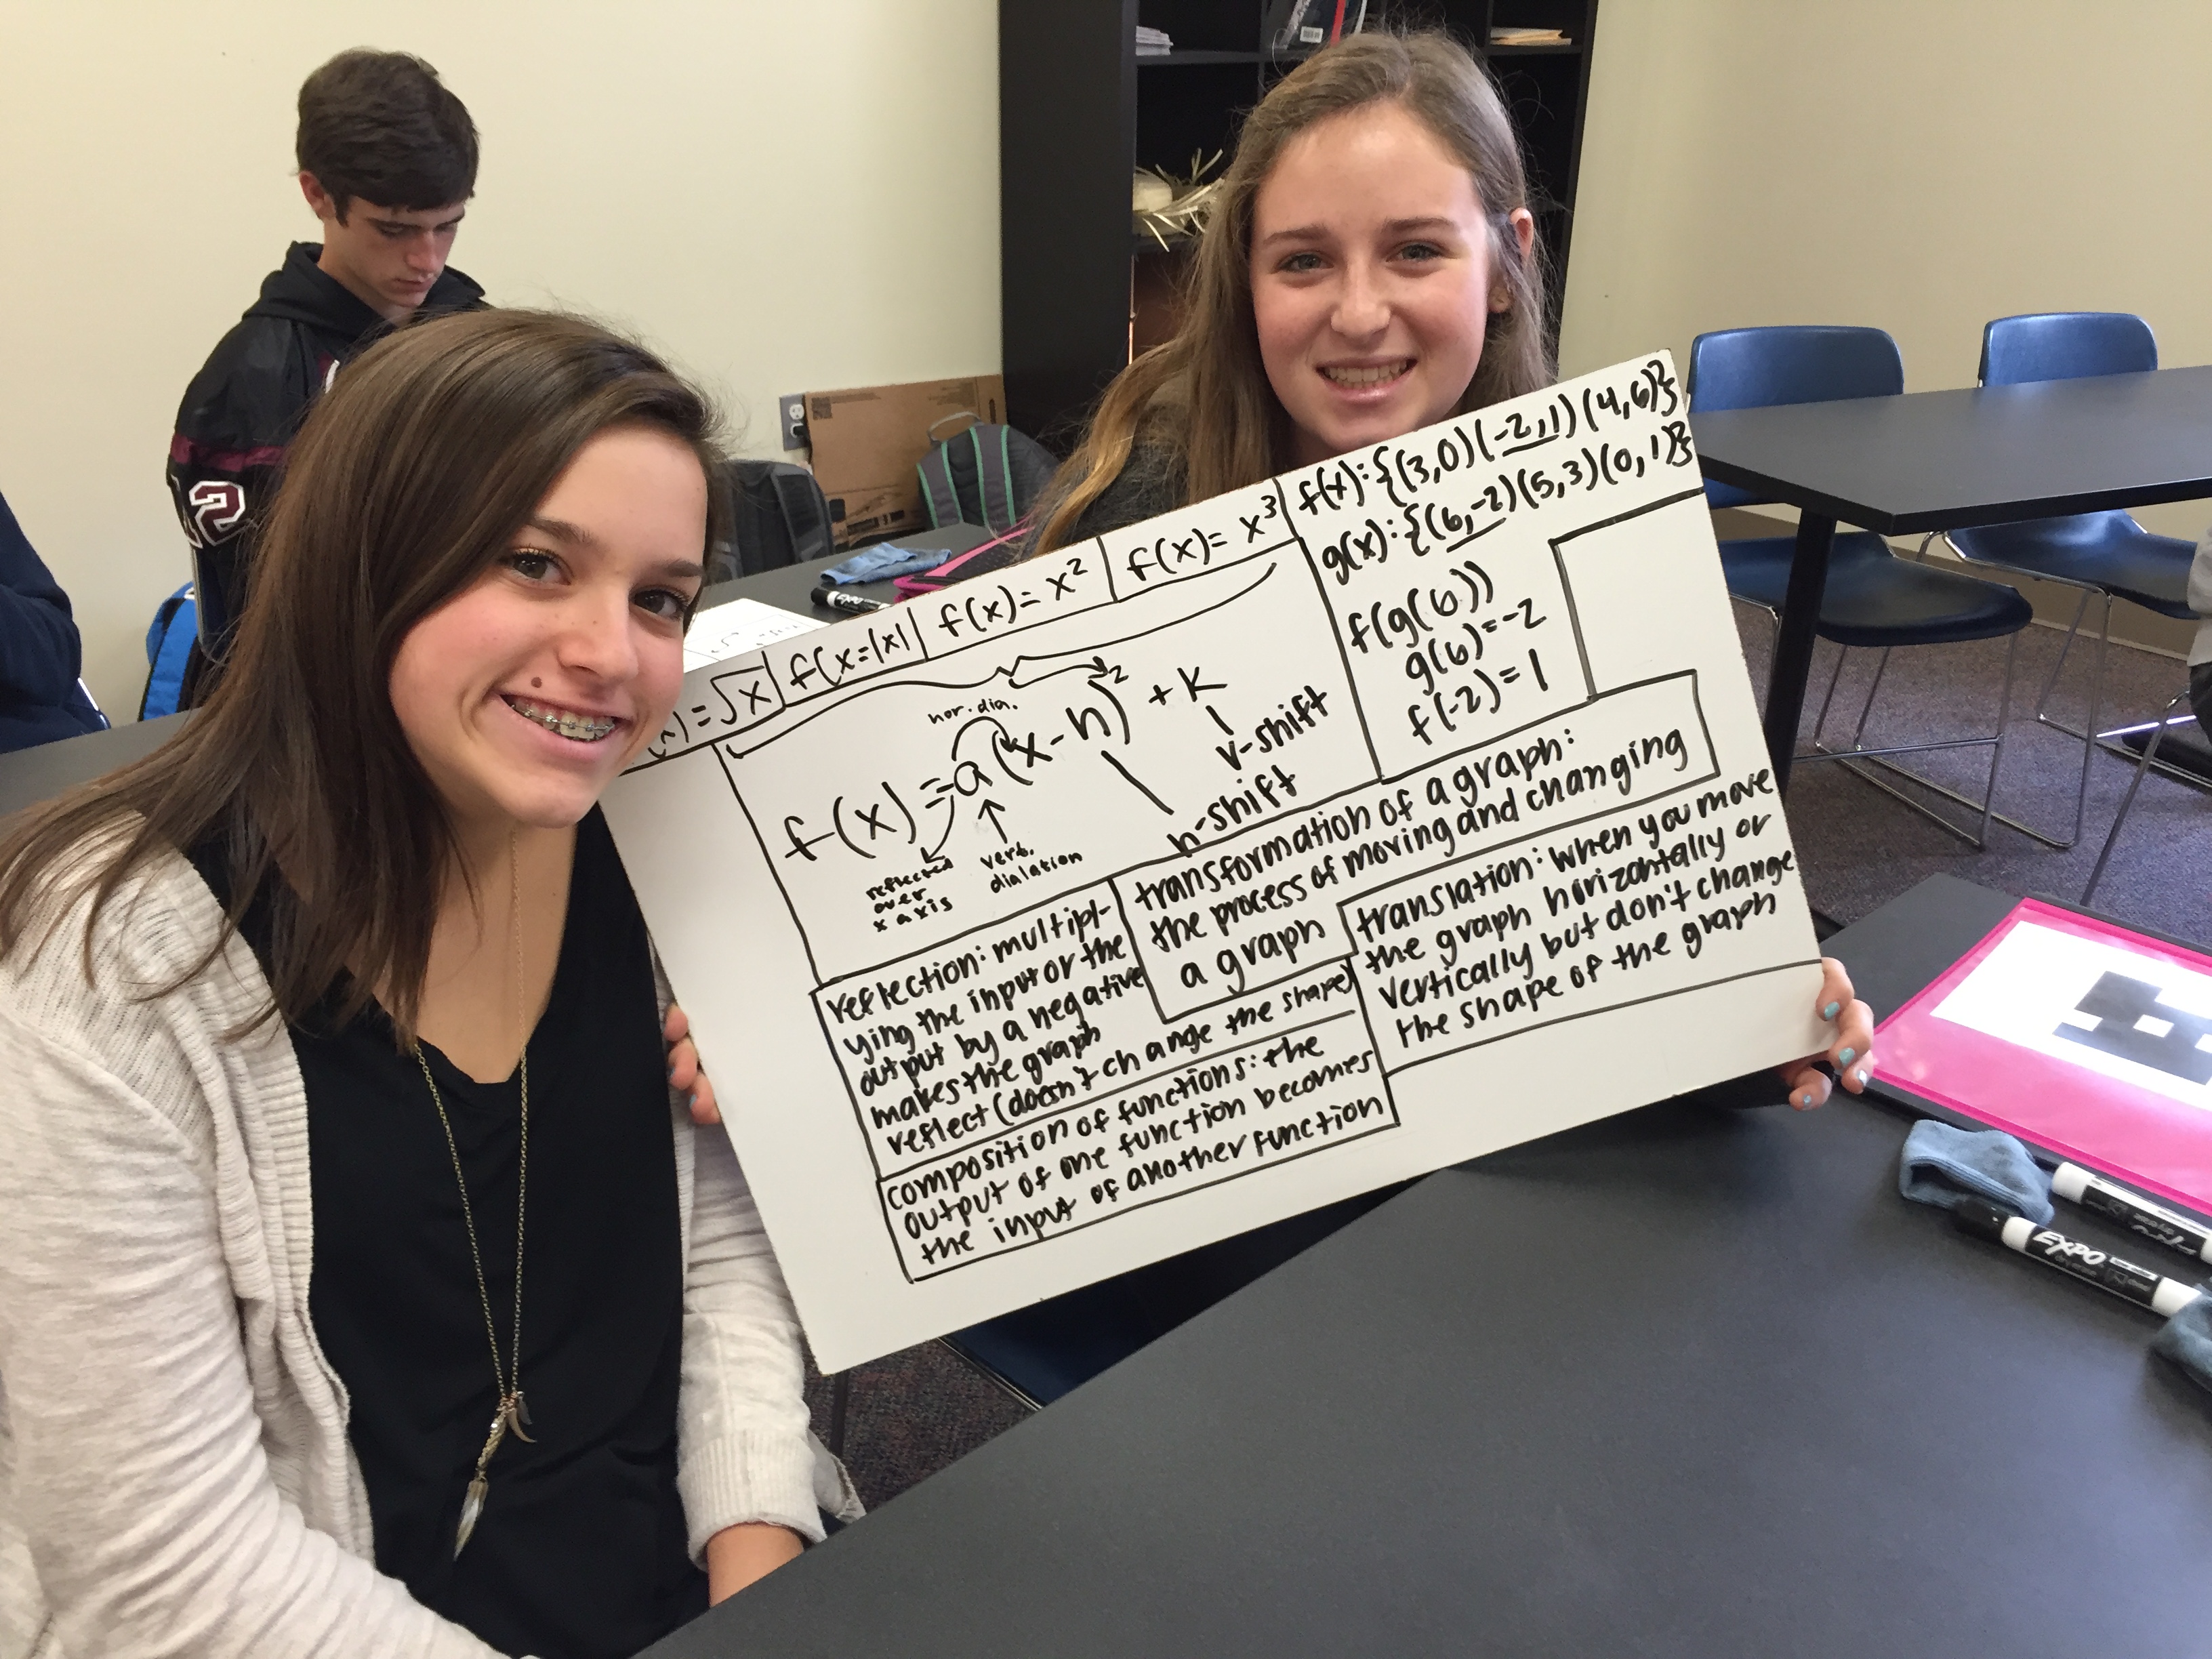 (x)=√x
f(x=|x|
f(x)=x²
f(x)=x³
f(x):{(3,0)(-2,1)(4,6)}
g(x):{(6,-2)(5,3)(0,1)}
f(g(6))
g(6)=-2
f(-2)=1
hor. dia.
f(x)=a(x-h)²+k
v-shift
h-shift
reflected
over
x axis
vert.
dialation
transformation of a graph:
the process of moving and changing
a graph
translation: when you move
the graph horizontally or
vertically but don't change
the shape of the graph
reflection: multipl-
ying the input or the
output by a negative
makes the graph
reflect (doesn't change the shape)
composition of functions: the
output of one function becomes
the input of another function
EXPO
EXPO
12